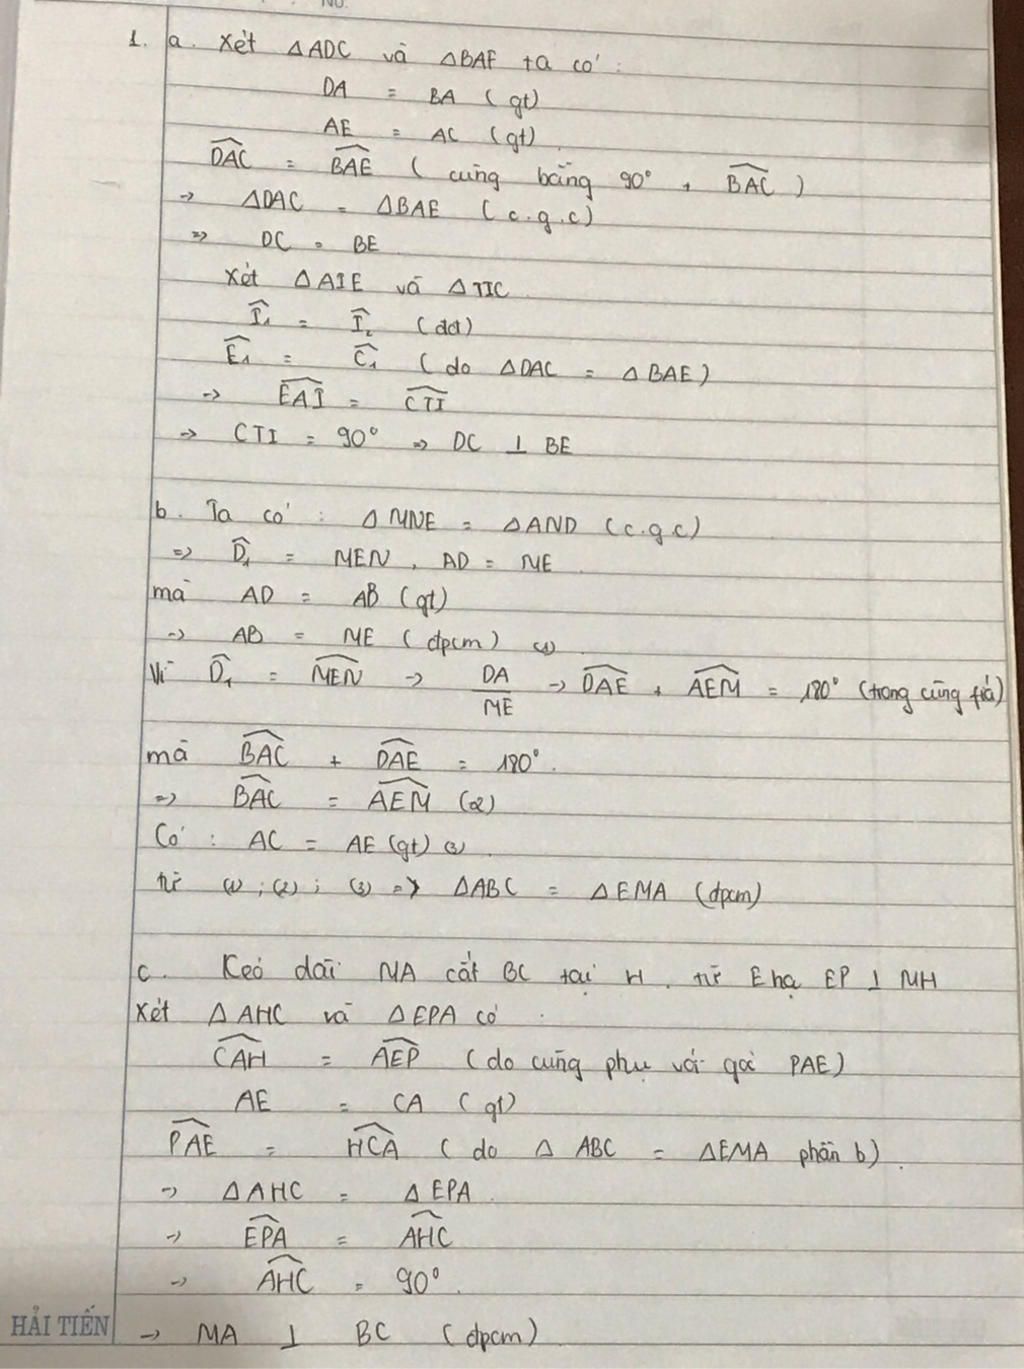 No.
1. a. Xét ΔADC và ΔBAE ta có :
DA = BA (gt)
AE = AC (gt).
\widehat{DAC} = \widehat{BAE} ( cùng bằng 90° + \widehat{BAC} )
→ ΔDAC = ΔBAE (c.g.c)
=> DC = BE
Xét ΔAIE và ΔTIC
\widehat{I₁} = \widehat{I₂} (đđ)
\widehat{E₁} = \widehat{C₁} (do ΔDAC = ΔBAE)
→ \widehat{EAI} = \widehat{CTI}
→ CTI = 90° => DC ⊥ BE
b. Ta có : ΔMNE = ΔAND (c.g.c)
=> \widehat{D₁} = MEN , AD = ME
mà AD = AB (gt)
→ AB = ME (đpcm) (1)
Vì \widehat{D₁} = \widehat{MEN} → DA/ME → \widehat{DAE} + \widehat{AEM} = 180° (trong cùng fía)
mà \widehat{BAC} + \widehat{DAE} = 180°.
=> \widehat{BAC} = \widehat{AEM} (2)
Có : AC = AE (gt) (3).
từ (1) ; (2) ; (3) => ΔABC = ΔEMA (đpcm)
c. Kéo dài MA cắt BC tại H, từ E hạ EP ⊥ MH
Xét ΔAHC và ΔEPA có :
\widehat{CAH} = \widehat{AEP} (do cùng phụ với góc PAE)
AE = CA (gt)
\widehat{PAE} = \widehat{HCA} ( do Δ ABC = ΔEMA phần b).
→ ΔAHC = ΔEPA.
→ \widehat{EPA} = \widehat{AHC}
→ \widehat{AHC} = 90°.
HẢI TIẾN → MA ⊥ BC (đpcm)